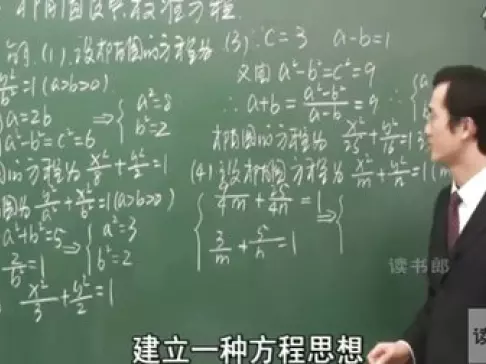 椭圆及其标准方程
(1) 设椭圆的方程为
y²/b² = 1 (a>b>0)
a = 2b
a² - b² = c² = 6 ⇒ { a² = 8
b² = 2
的方程为 x²/8 + y²/2 = 1
圆为 y²/a² + x²/b² = 1 (a>b>0)
a² + b² = 5 ⇒ { a² = 3
2/b² = 1
b² = 2
x²/3 + y²/2 = 1
(3) c = 3 a - b = 1
又由 a² - b² = c² = 9
∴ a + b = (a² - b²)/(a - b) = 9 ∴ {
椭圆方程为 x²/25 + y²/16 = 1
(4) 设椭圆方程为 x²/m + y²/n = 1 (m
/4m + 25/4n = 1 ⇒ {
3/m + 5/n = 1
读书郎
读
建立一种方程思想